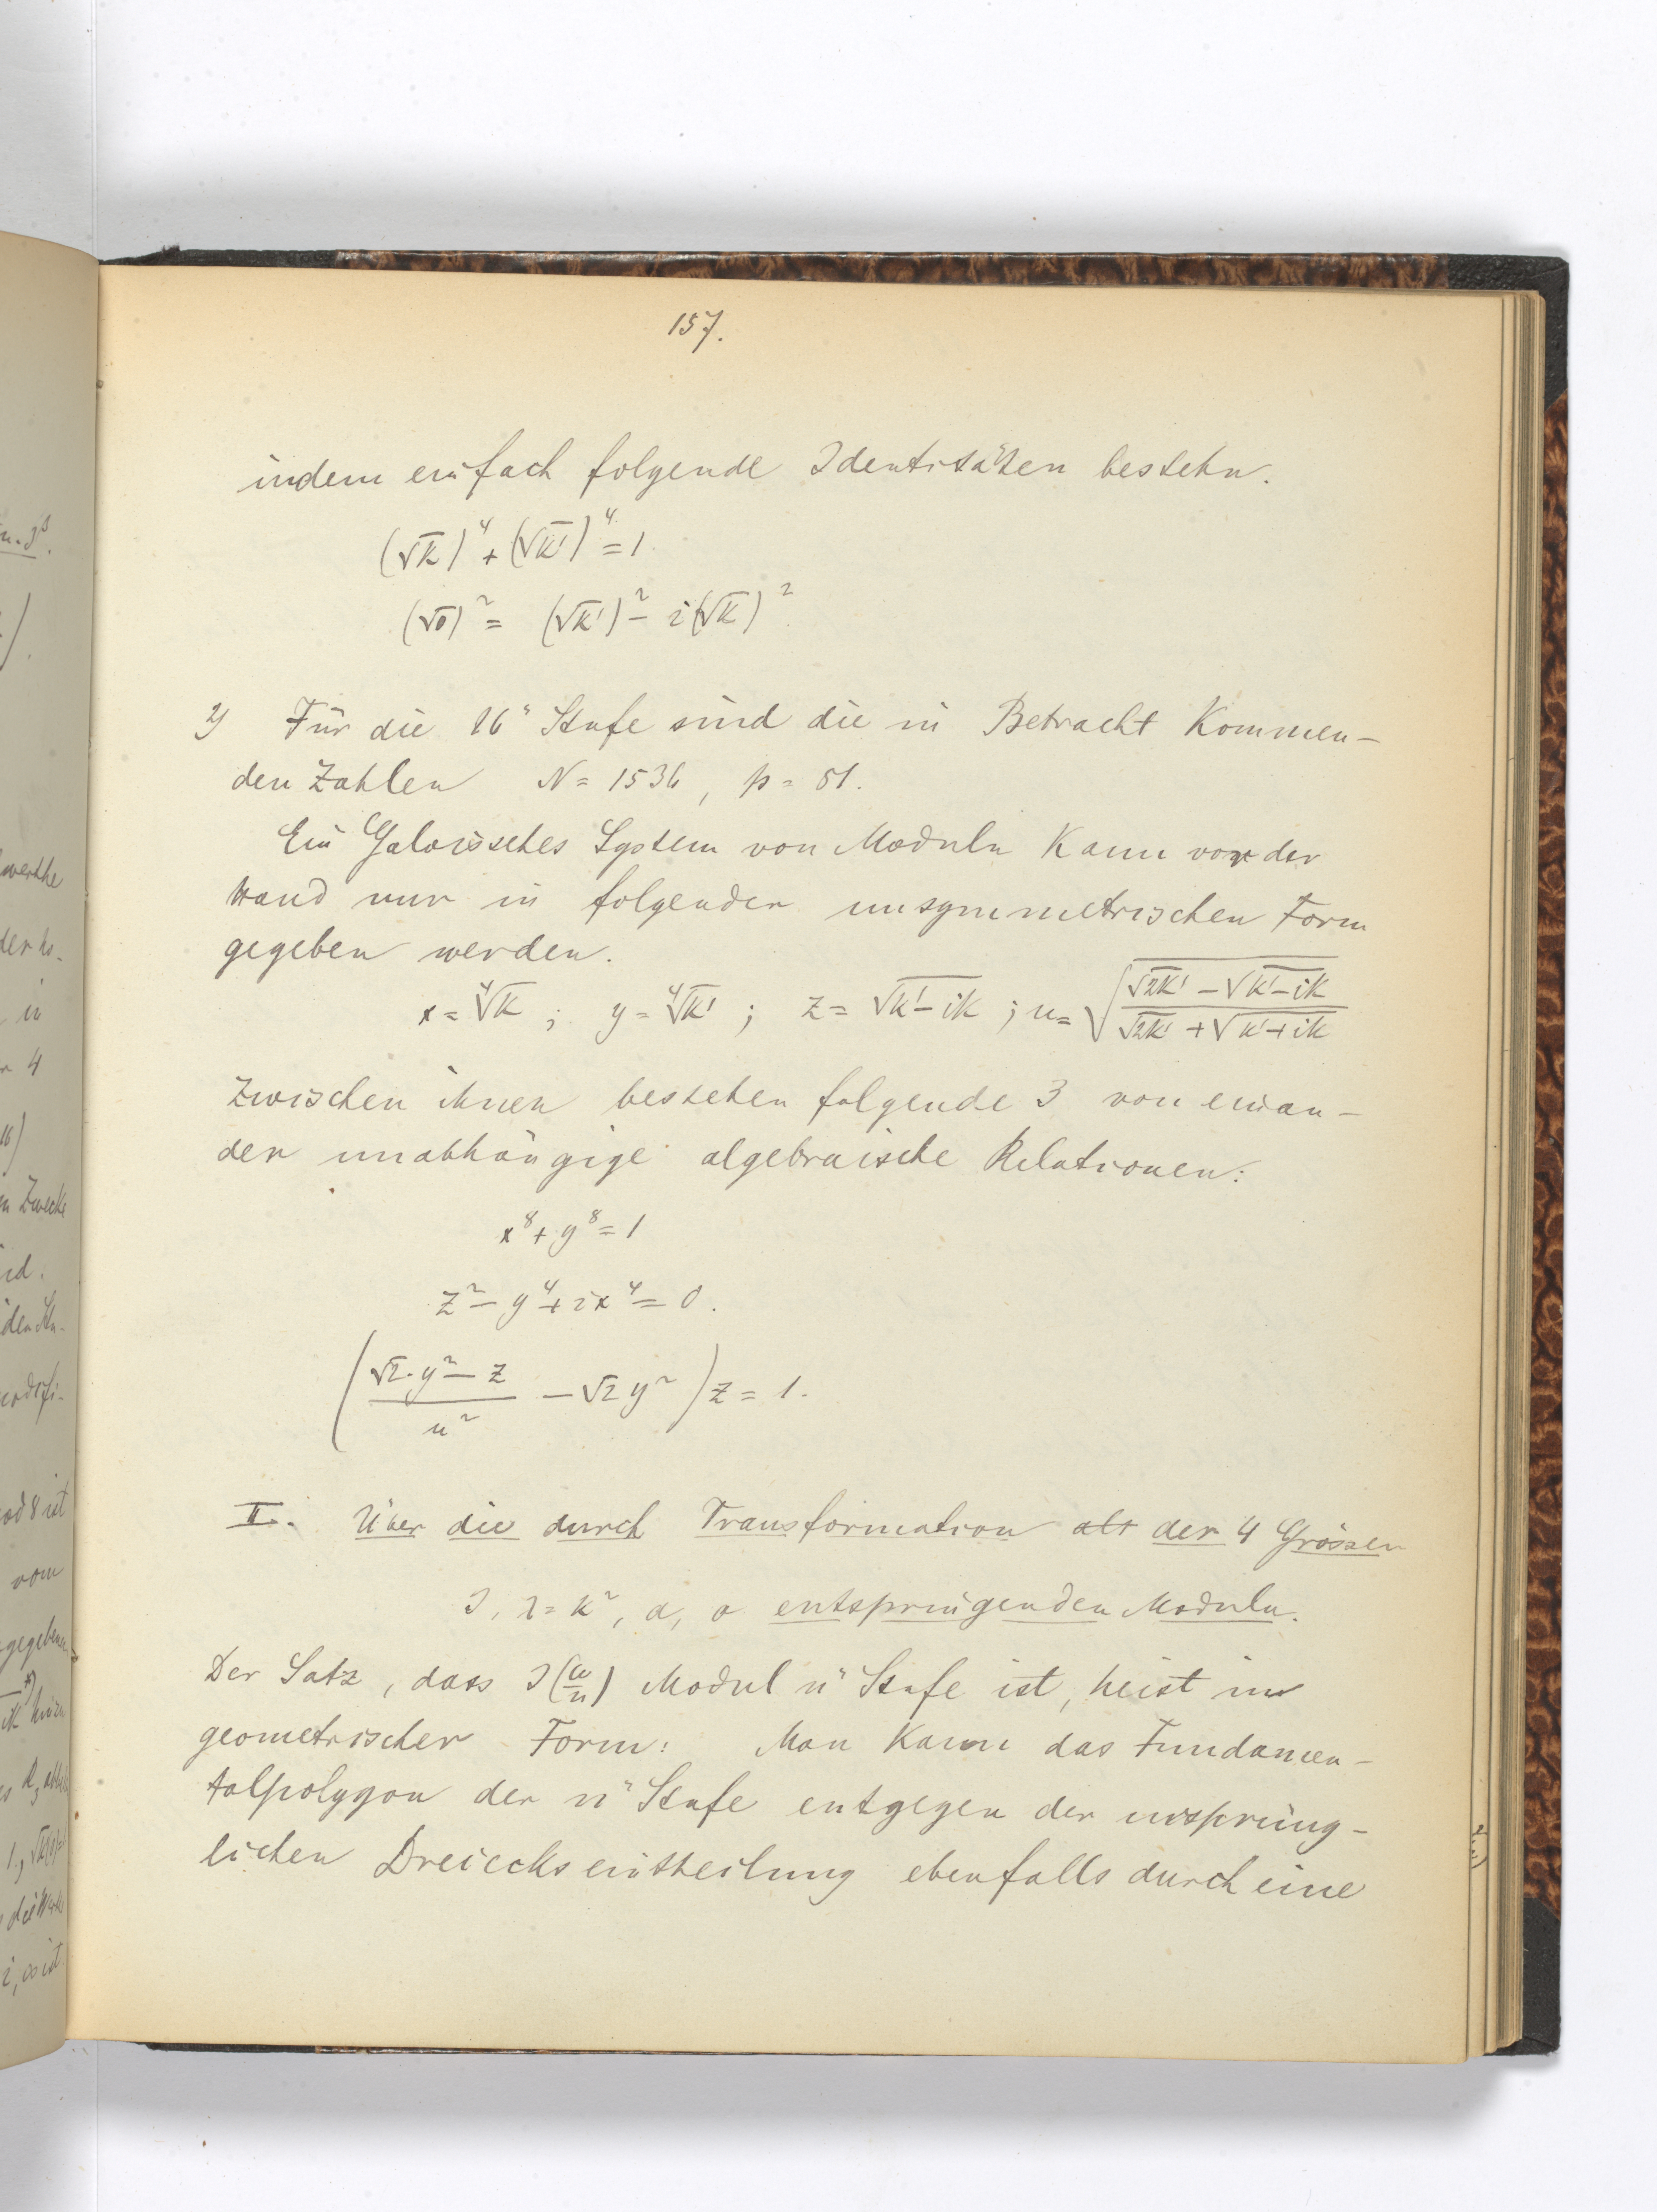 157.
indem einfach folgende Identitäten bestehn.
(√k)⁴ + (√k')⁴ = 1
(√σ)² = (√k')² – i(√k)²
2) Für die 16" Stufe sind die in Betracht kommen-
den Zahlen N = 1536, p = 81.
Ein Galoissches System von Moduln kann vor der
Hand nur in folgender unsymmetrischen Form
gegeben werden.
x = ⁴√k ; y = ⁴√k' ; z = √(k'–ik) ; u = √((√2k' – √(k'–ik))/(√2k' + √(k'+ik)))
Zwischen ihnen bestehen folgende 3 von einan-
der unabhängige algebraische Relationen:
x⁸ + y⁸ = 1
z² – y⁴ + ix⁴ = 0.
((√2·y² – z)/u² – √2 y²) z = 1.
II. Über die durch Transformation der 4 Grössen
J, λ = k², α, σ entspringenden Moduln.
Der Satz, dass J(ω/n) Modul n" Stufe ist, heist in
geometrischer Form: Man kann das Fundamen-
talpolygon der n" Stufe entgegen der ursprüng-
lichen Dreieckseintheilung ebenfalls durch eine